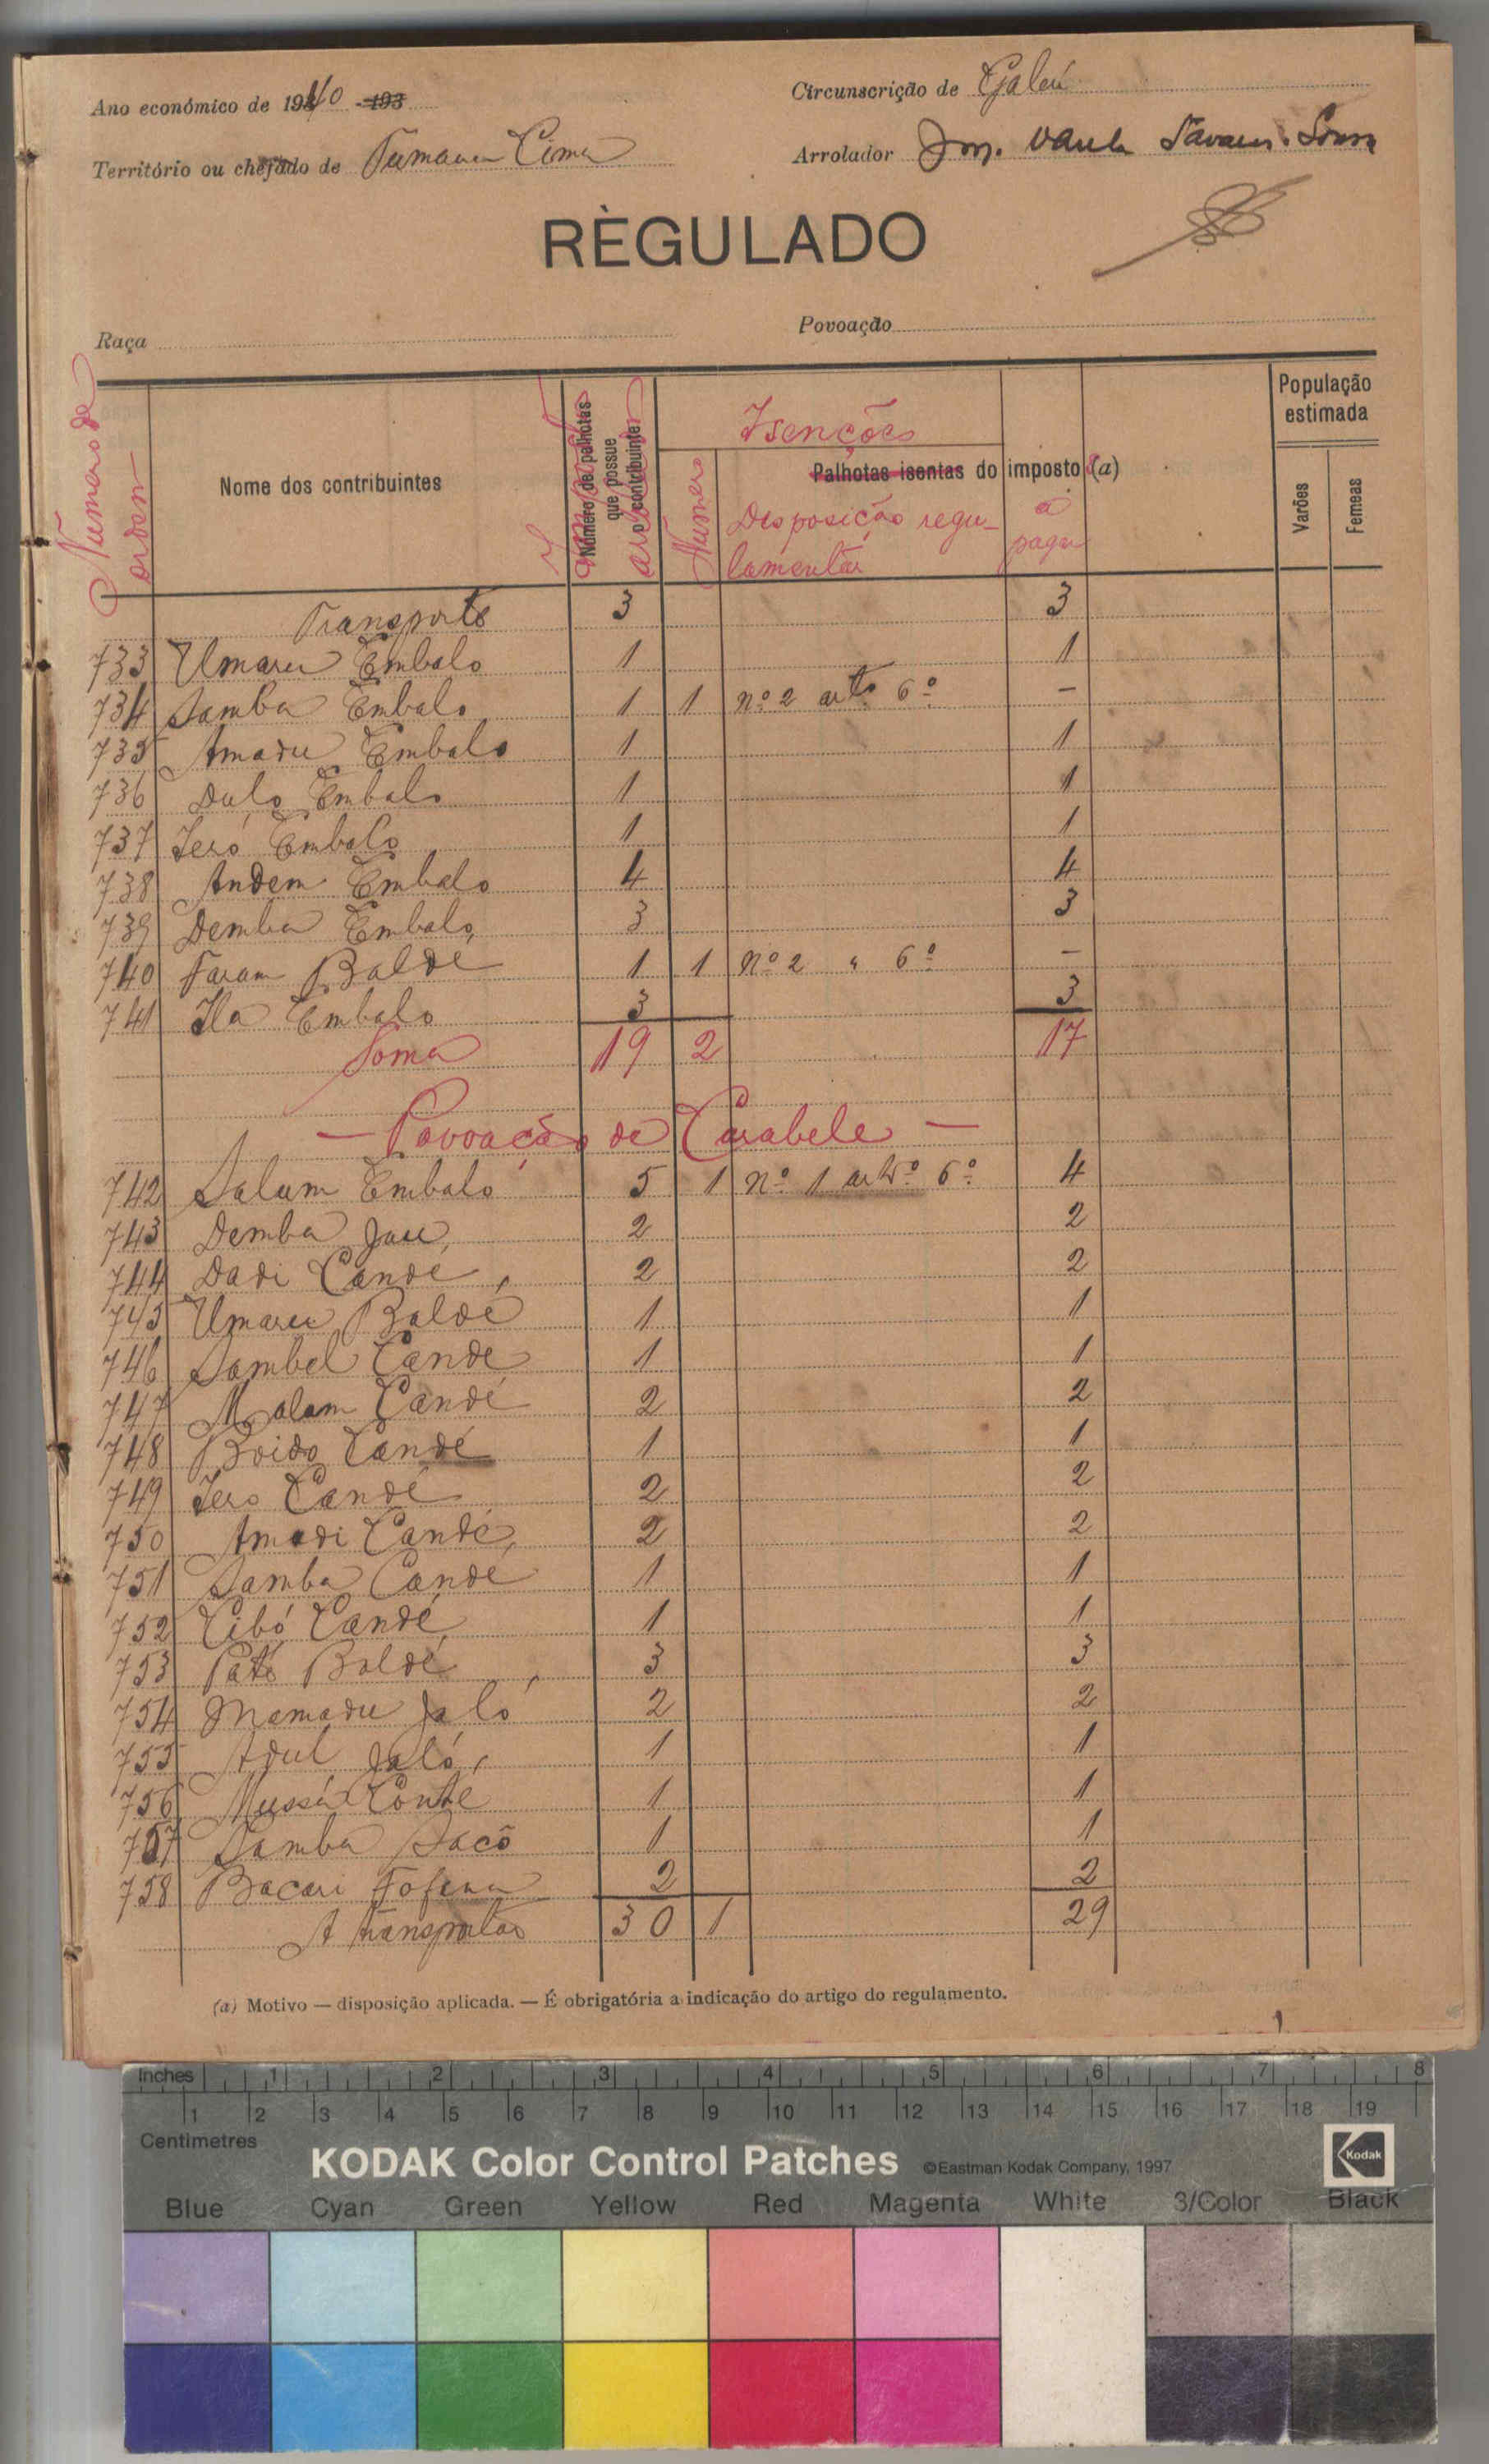 Ano económico de 1940 -193
Circunscrição de Gabú
Território ou chefado de Tumana Cima
Arrolador
RÈGULADO
Raça
Povoação
Numero de ordem
Nome dos contribuintes
Número de palhotas que possue o contribuinte
Isenções
Palhotas isentas do imposto (a)
Numero
Disposição regulamentar
a pagar
População estimada
Varões
Femeas
Transporte 3 3
733 Umaru Embalo 1 1
734 Samba Embalo 1 1 nº 2 artº 6º -
735 Amadu Embalo 1 1
736 Dulo Embalo 1 1
737 Jeró Embalo 1 1
738 Andem Embalo 4 4
739 Demba Embalo 3 3
740 Faram Baldé 1 1 nº 2 " 6º -
741 Ila Embalo 3 3
Soma 19 2 17
— Povoação de Carabele —
742 Salum Embaló 5 1 nº 1 artº 6º 4
743 Demba 2 2
744 Dadi Candé 2 2
745 Umaru Baldé 1 1
746 Sambel Candé 1 1
747 Malam Candé 2 2
748 Boido Candé 1 1
749 Jero Candé 2 2
750 Amadi Candé 2 2
751 Samba Candé 1 1
752 Cibó Candé 1 1
753 Paté Baldé 3 3
754 Mamadu Jaló 2 2
755 Adul Jaló 1 1
756 Mussá Conté 1 1
757 Samba Sacô 1 1
758 Bacari Fofana 2 2
A transportar 30 1 29
(a) Motivo — disposição aplicada. — É obrigatória a indicação do artigo do regulamento.
Inches 1 2 3 4 5 6 7 8
1 2 3 4 5 6 7 8 9 10 11 12 13 14 15 16 17 18 19
Centimetres
KODAK Color Control Patches ©Eastman Kodak Company, 1997 Kodak
Blue Cyan Green Yellow Red Magenta White 3/Color Black